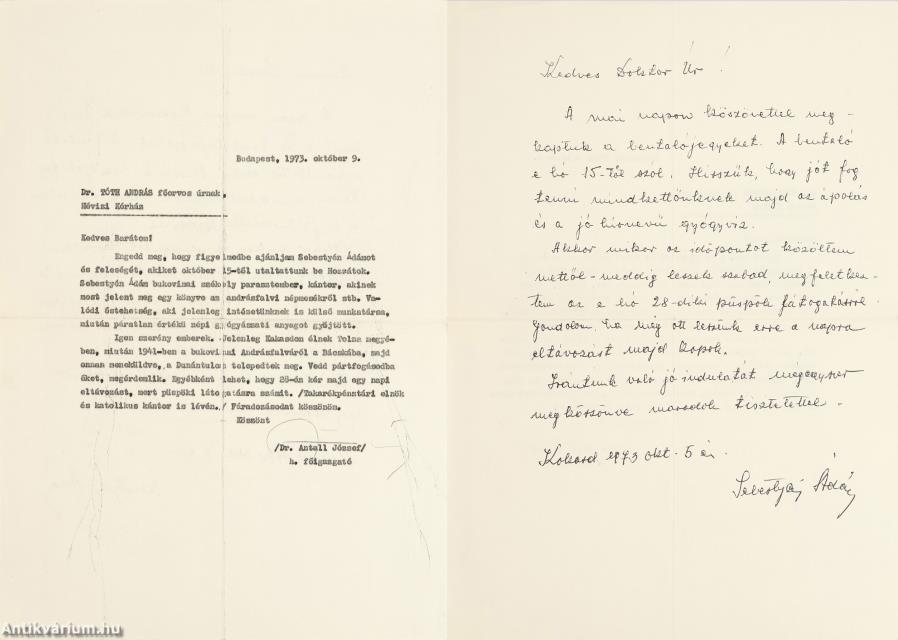 Budapest, 1973. október 9.
Dr. TÓTH ANDRÁS főorvos úrnak,
Hévizi Kórház
Kedves Barátom!
Engedd meg, hogy figyelmedbe ajánljam Sebestyén Ádámot
és feleségét, akiket október 15-től utaltattunk be Hozzátok.
Sebestyén Ádám bukovinai székely parasztember, kántor, akinek
most jelent meg egy könyve az andrásfalvi népmesékről stb. Va-
lódi őstehetség, aki jelenleg intézetünknek is külső munkatársa,
miután páratlan értékű népi gyógyászati anyagot gyűjtött.
Igen szerény emberek. Jelenleg Kakasdon élnek Tolna megyé-
ben, miután 1941-ben a bukovinai Andrásfalváról a Bácskába, majd
onnan menekülve, a Dunántulon telepedtek meg. Vedd pártfogásodba
őket, megérdemlik. Egyébként lehet, hogy 28-án kér majd egy napi
eltávozást, mert püspöki látogatásra számit. /Takarékpénztári elnök
és katolikus kántor is lévén./ Fáradozásodat köszönöm.
Köszönt
/Dr. Antall József/
h. főigazgató
Kedves Doktor Úr!
A mai napon köszönettel meg-
kaptuk a beutalójegyeket. A beutaló
e hó 15-től szól. Hisszük, hogy jót fog
tenni mindkettőnknek majd az ápolás
és a jó hírnevű gyógyvíz.
Akkor mikor az időpontot közöltem
mettől-meddig leszek szabad, megfeletkez-
tem az e hó 28-diki püspök látogatásról.
Gondolom, ha még ott leszünk erre a napra
eltávozást majd kapok.
Irántunk való jó indulatát mégegyszer
megköszönve maradok tisztelettel.
Kakasd 1973 okt. 5 én
Sebestyén Ádám
Antikvárium.hu